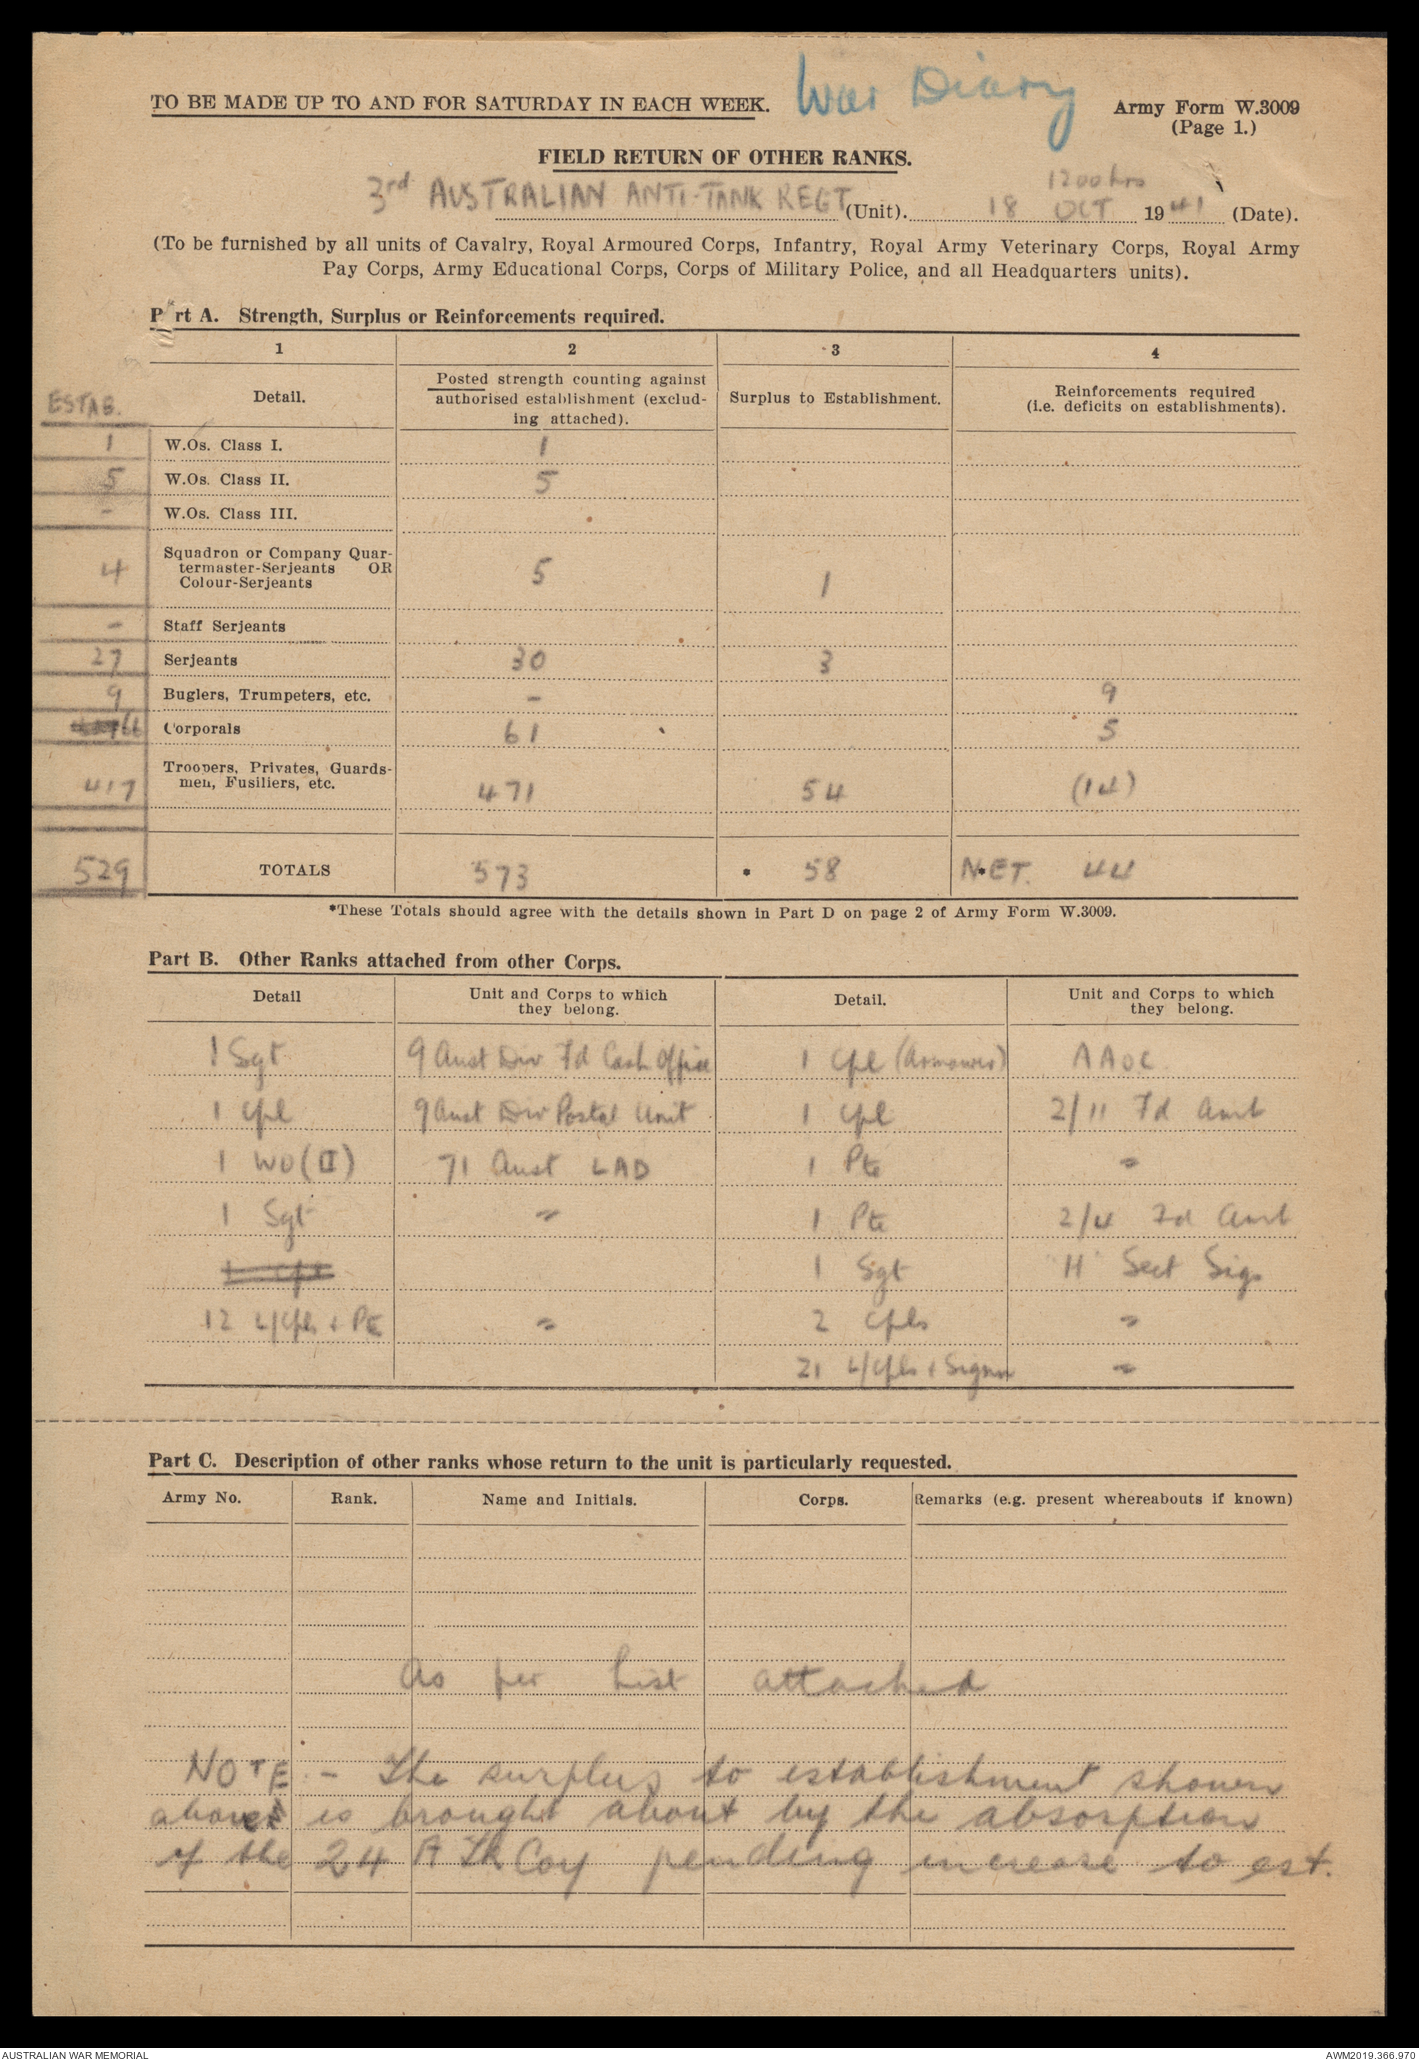 War Diary
TO BE MADE UP TO AND FOR SATURDAY IN EACH WEEK.
Army Form W.3009
(Page 1.)
FIELD RETURN OF OTHER RANKS.
1200hrs
3rd AUSTRALIAN ANTI-TANK REGT (Unit). 18 OCT 1941 (Date).
(To be furnished by all units of Cavalry, Royal Armoured Corps, Infantry, Royal Army Veterinary Corps, Royal Army
Pay Corps, Army Educational Corps, Corps of Military Police, and all Headquarters units).
P rt A. Strength, Surplus or Reinforcements required.
1 2 3 4
ESTAB.
Detail.
Posted strength counting against
authorised establishment (exclud-
ing attached).
Surplus to Establishment.
Reinforcements required
(i.e. deficits on establishments).
1 W.Os. Class I. 1
5 W.Os. Class II. 5
- W.Os. Class III.
Squadron or Company Quar-
4 termaster-Serjeants OR 5 1
Colour-Serjeants
- Staff Serjeants
27 Serjeants 30 3
9 Buglers, Trumpeters, etc. - 9
66 Corporals 61 5
Troopers, Privates, Guards-
417 men, Fusiliers, etc. 471 54 (14)
529 TOTALS 573 * 58 N*ET. 44
*These Totals should agree with the details shown in Part D on page 2 of Army Form W.3009.
Part B. Other Ranks attached from other Corps.
Detail
Unit and Corps to which
they belong.
Detail.
Unit and Corps to which
they belong.
1 Sgt 9 Aust Div Fd Cash Office 1 Cpl (Armourer) AAOC.
1 Cpl 9 Aust Div Postal Unit 1 Cpl 2/11 Fd Amb
1 WO(II) 71 Aust LAD 1 Pte "
1 Sgt " 1 Pte 2/4 Fd Amb
1 Cpl 1 Sgt 11 Sect Sigs
12 L/Cpls + Pte " 2 Cpls "
21 L/Cpls + Signn "
Part C. Description of other ranks whose return to the unit is particularly requested.
Army No. Rank. Name and Initials. Corps. Remarks (e.g. present whereabouts if known)
As per list attached
NOTE - The surplus to establishment shown
above is brought about by the absorption
of the 24 A Tk Coy pending increase to est.
AUSTRALIAN WAR MEMORIAL
AWM2019.366.970